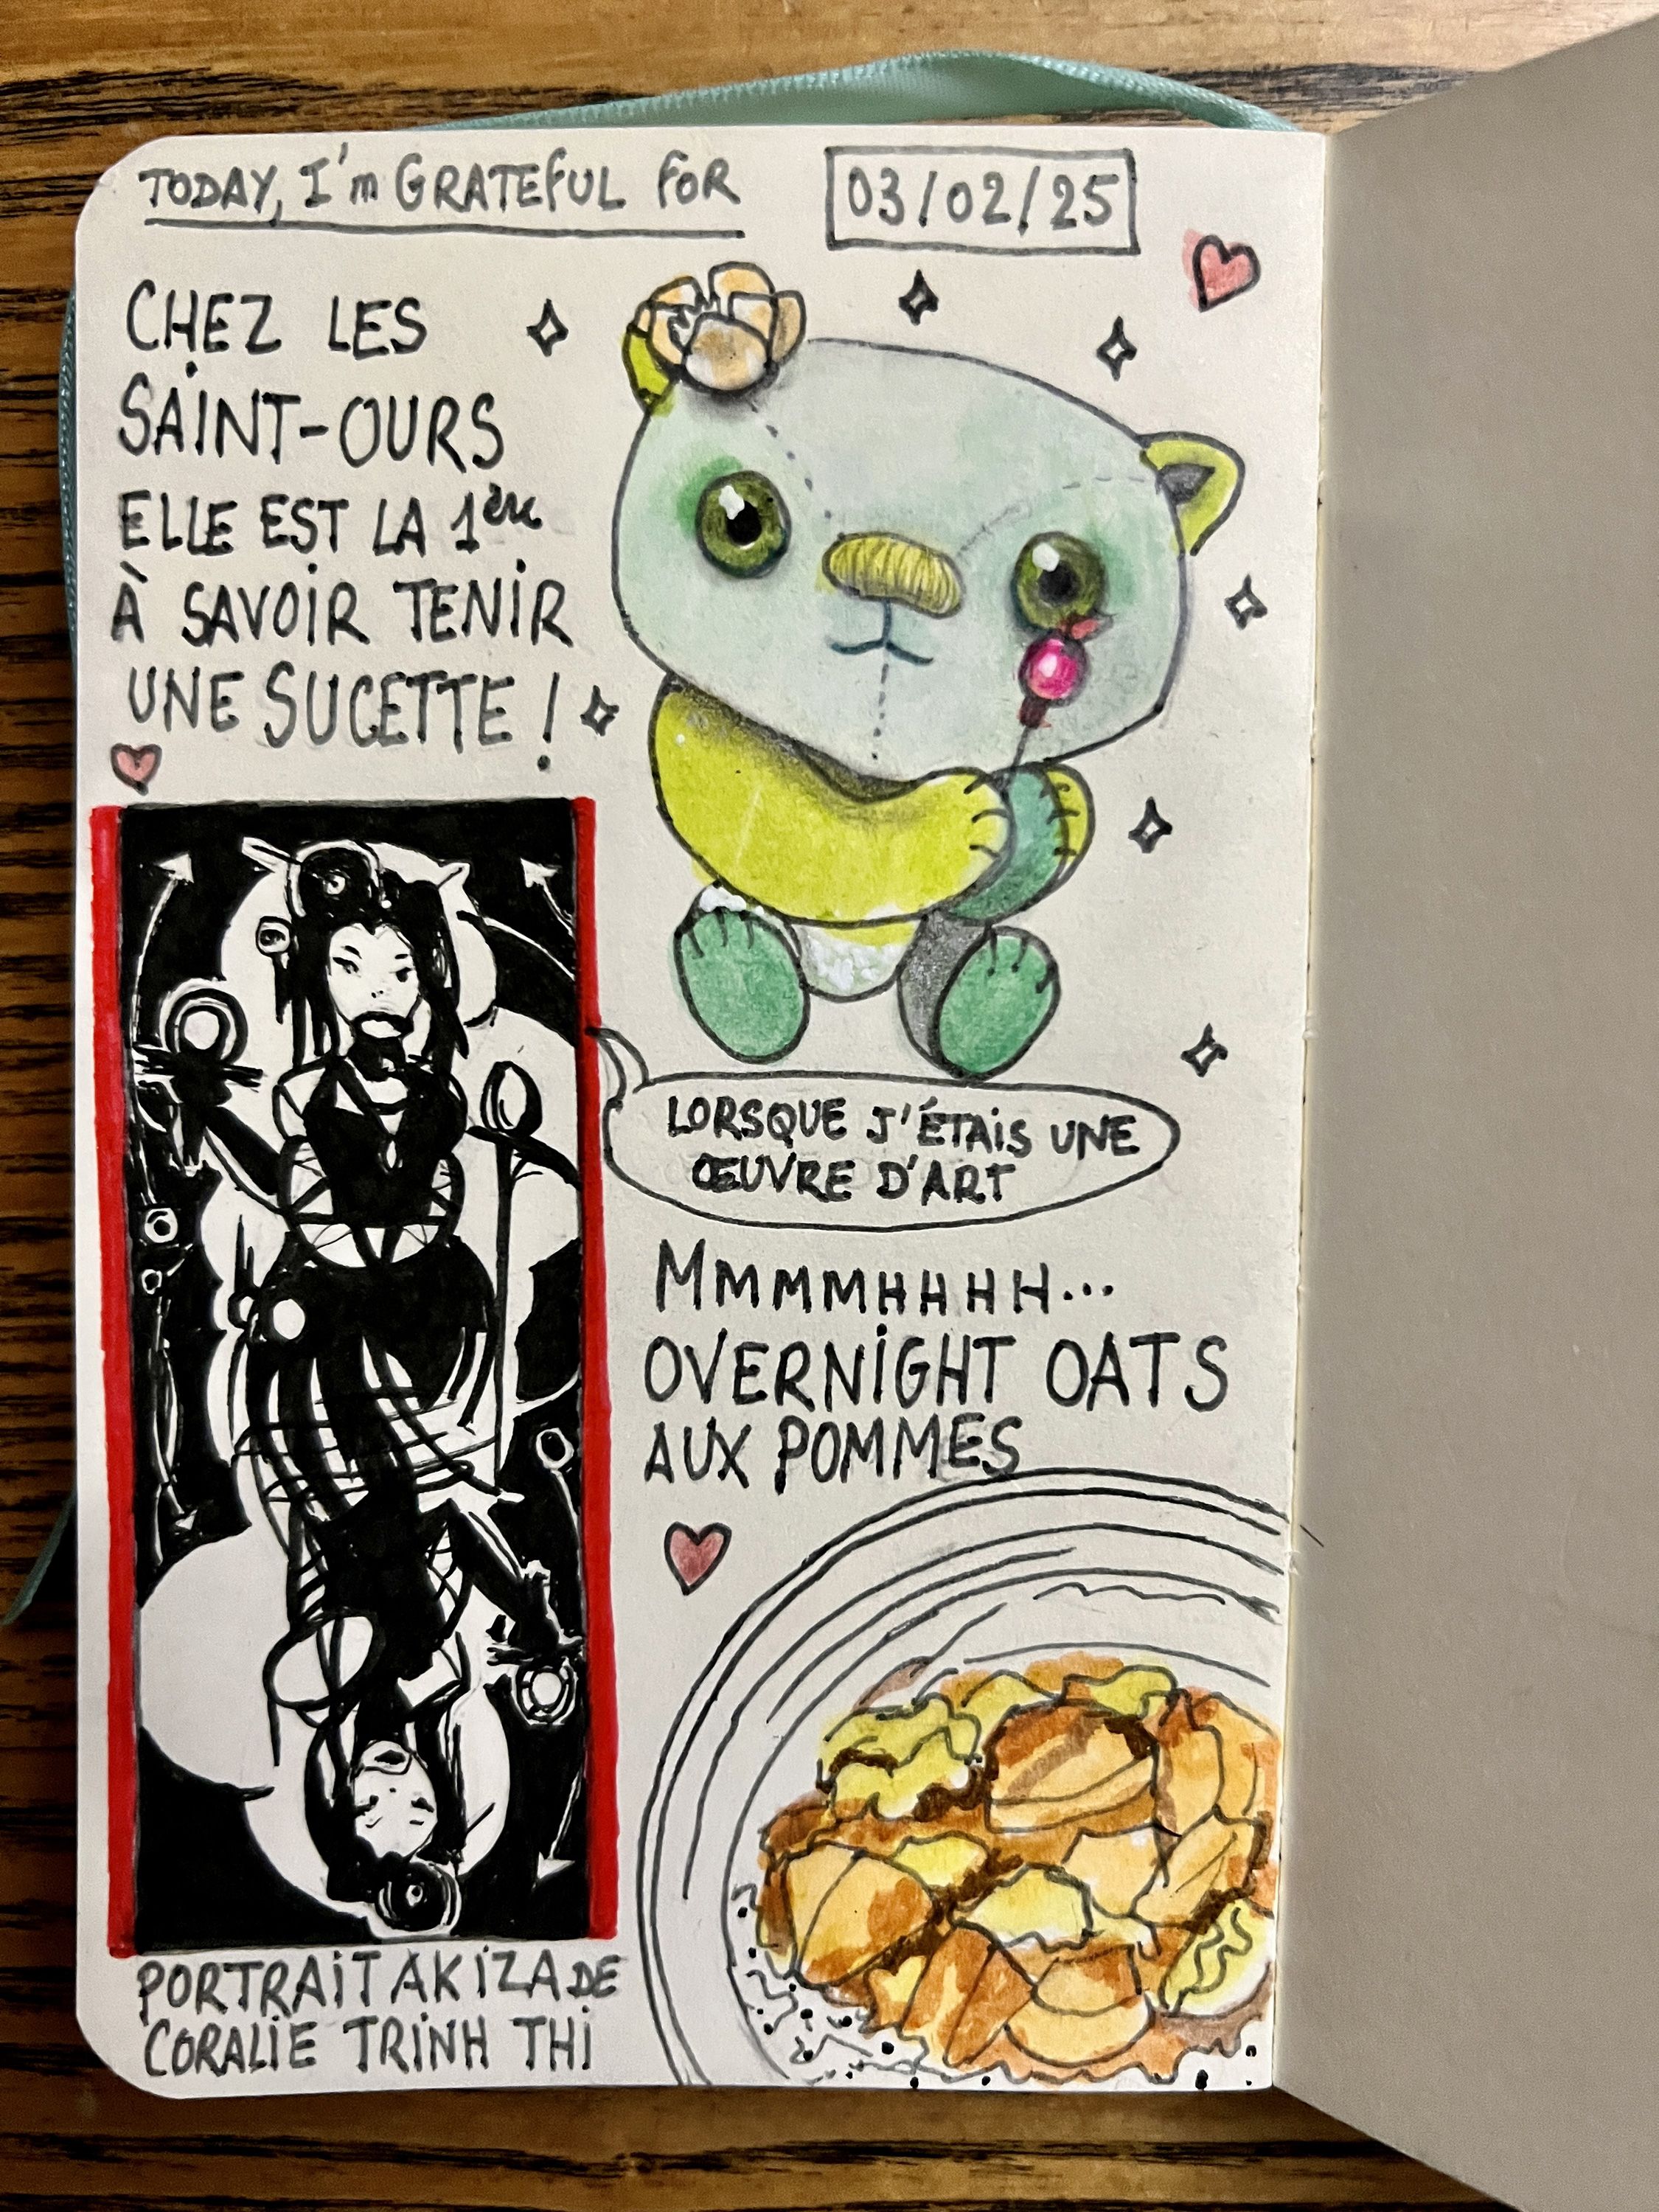 TODAY, I'm GRATEFUL FOR
03/02/25
CHEZ LES
SAINT-OURS
ELLE EST LA 1ère
À SAVOIR TENIR
UNE SUCETTE !
LORSQUE J'ÉTAIS UNE
ŒUVRE D'ART
MMMMHHHH...
OVERNIGHT OATS
AUX POMMES
PORTRAIT AKIZA DE
CORALIE TRINH THI